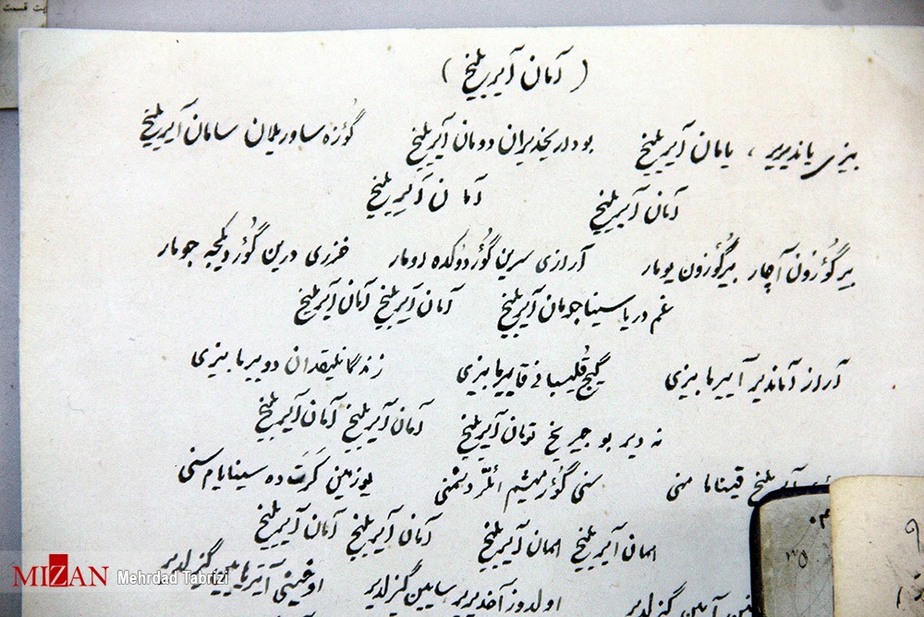 یت قسمت
( آمان آیریلیخ )
بیزی یاندیریر ، یامان آیریلیخ بو داریخدیران دومان آیریلیخ گؤزه ساوریلان سامان آیریلیخ
آمان آیریلیخ آمان آیریلیخ
بیر گؤزون آچار بیر گؤزون یومار آرازی سرین گؤردوکده اومار خزری درین گؤردیکجه جومار
غم دریاسینا جومان آیریلیخ آمان آیریلیخ آمان آیریلیخ
آراز آماندیر آییرما بیزی گیج قلیبسانی قاییرما بیزی زندگانلیقدان دویرما بیزی
نه دیر بو جیریخ تومان آیریلیخ آمان آیریلیخ آمان آیریلیخ
آیریلیخ قیناما منی سنی گؤرمیشم ائلر دشمنی یوزمین کرت ده سینایام سنی
امان آیریلیخ امان آیریلیخ آمان آیریلیخ آمان آیریلیخ
گیزلدیر اولدوز آخدیریر سایین گیزلدیر اوخینی آتیر یایین گیزلدیر
MIZAN Mehrdad Tabrizi